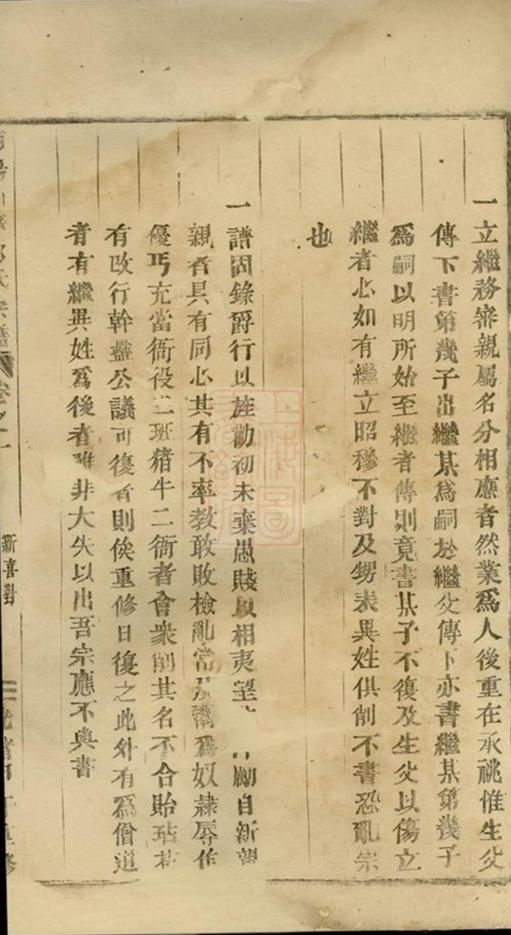 一立繼務審親屬名分相應者然業爲人後重在承祧惟生父
傳下書第幾子出繼某爲嗣於繼父傳下亦書繼某第幾子
爲嗣以明所始至繼者傳則竟書某子不復及生父以傷立
繼者心如有繼立昭穆不對及甥表異姓俱削不書恐亂宗
也
一譜固錄爵行以旌勸初未棄愚賤以相夷望 勵自新親
親者具有同心其有不率教敢敗檢亂常及鬻爲奴隸辱作
優丐充當衙役二班猪牛二衙者會衆削其名不合貽玷若
有改行幹蠱公議可復者則俟重修日復之此外有爲僧道
者有繼異姓爲後者雖非大失以出吾宗應不與書
氏宗譜 卷之一
新喜對